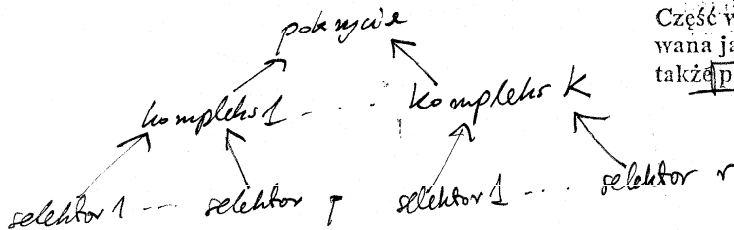 pokrycie
Część w
wana ja
także p
kompleks 1 . . . . kompleks K
selektor 1 ... selektor p selektor 1 ... selektor r